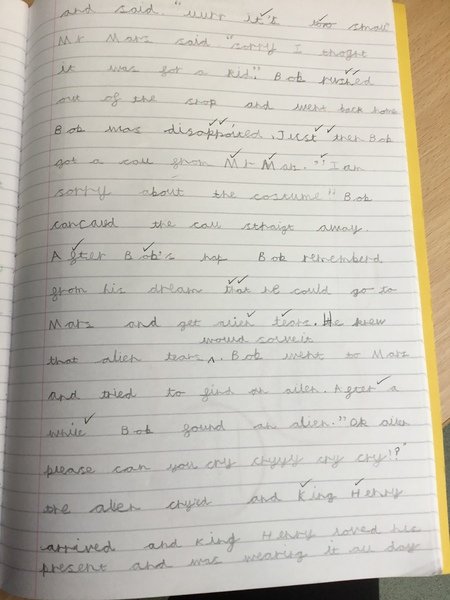 and said "uurr it's too small"
Mr Mars said "sorry I thoght
it was for a kid." Bob rushed
out of the shop and went back home
Bob was disappoited. Just then Bob
got a call from Mr Mars. "I am
sorry about the costume" Bob
cancaled the call straigt away.
After Bob's nap Bob rememberd
from his dream that he could go to
Mars and get alien tears. He knew
would solve it
that alien tears ^. Bob went to Mars
and tried to find an alien. After a
while Bob found an alien. "Ok alien
please can you cry cryyy cry cry!?"
the alien cryed and King Henry
arrived and King Henry loved his
present and was wearing it all day